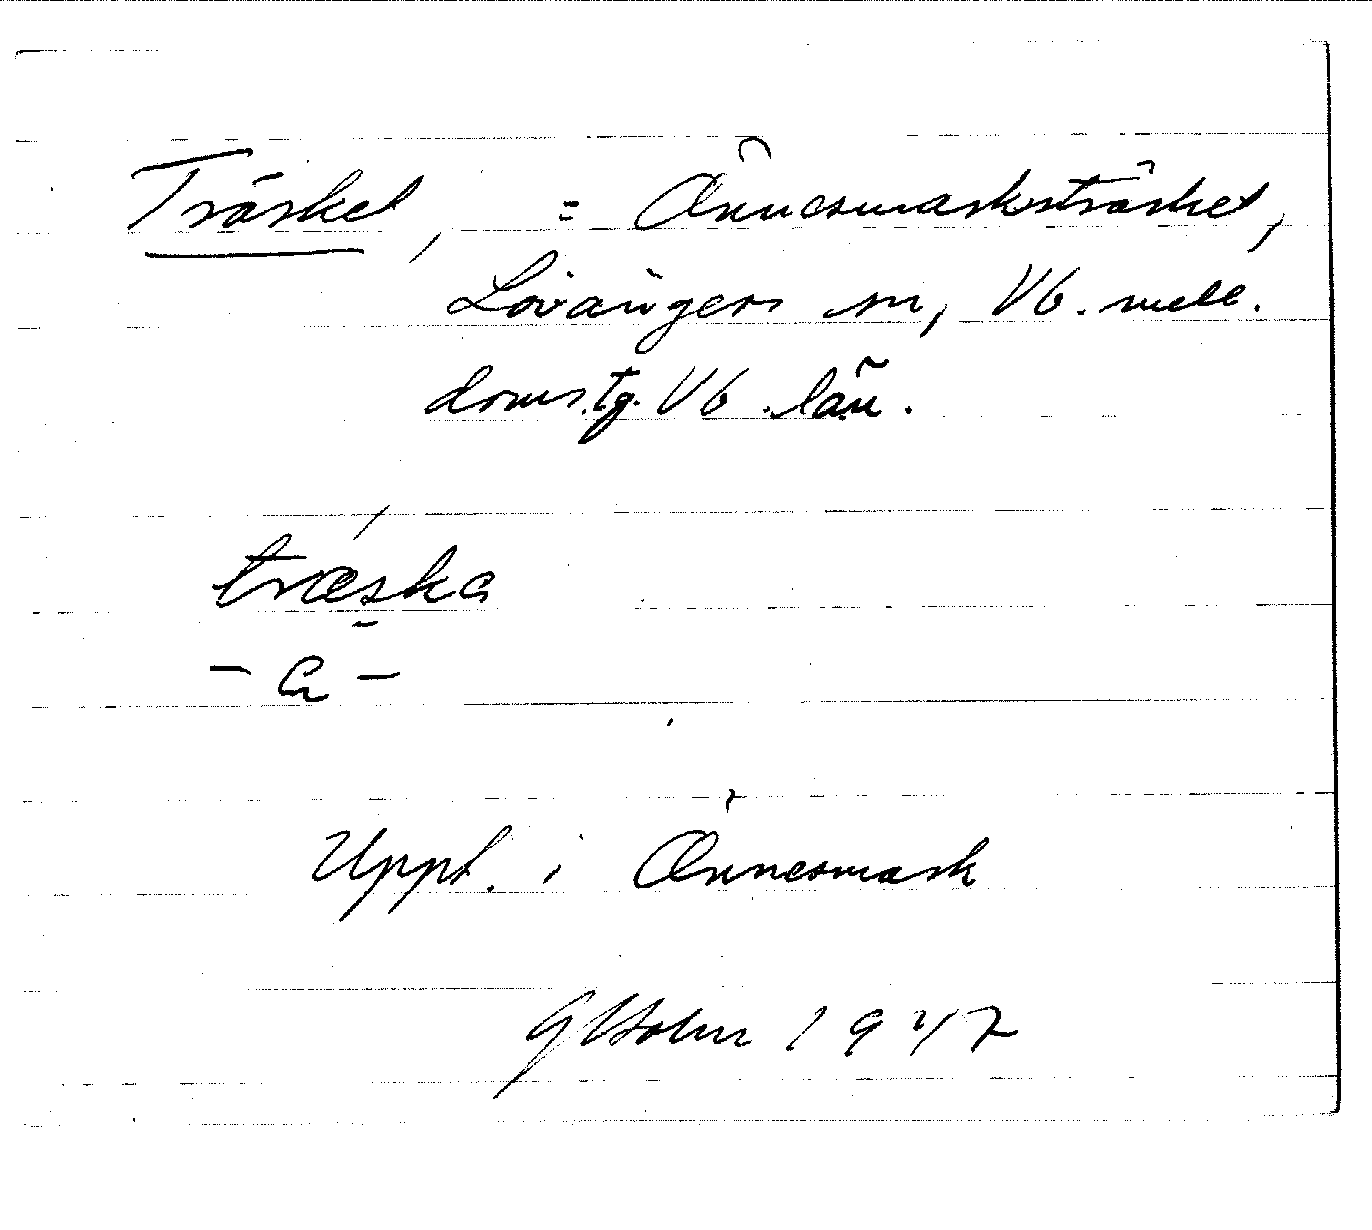 Träsket, = Önnesmarksträsket,
Lövångers sn, Vb. mell.
doms.tg. Vb. län.
træska
- a -
Uppt. i Önnesmark
G Holm 1947